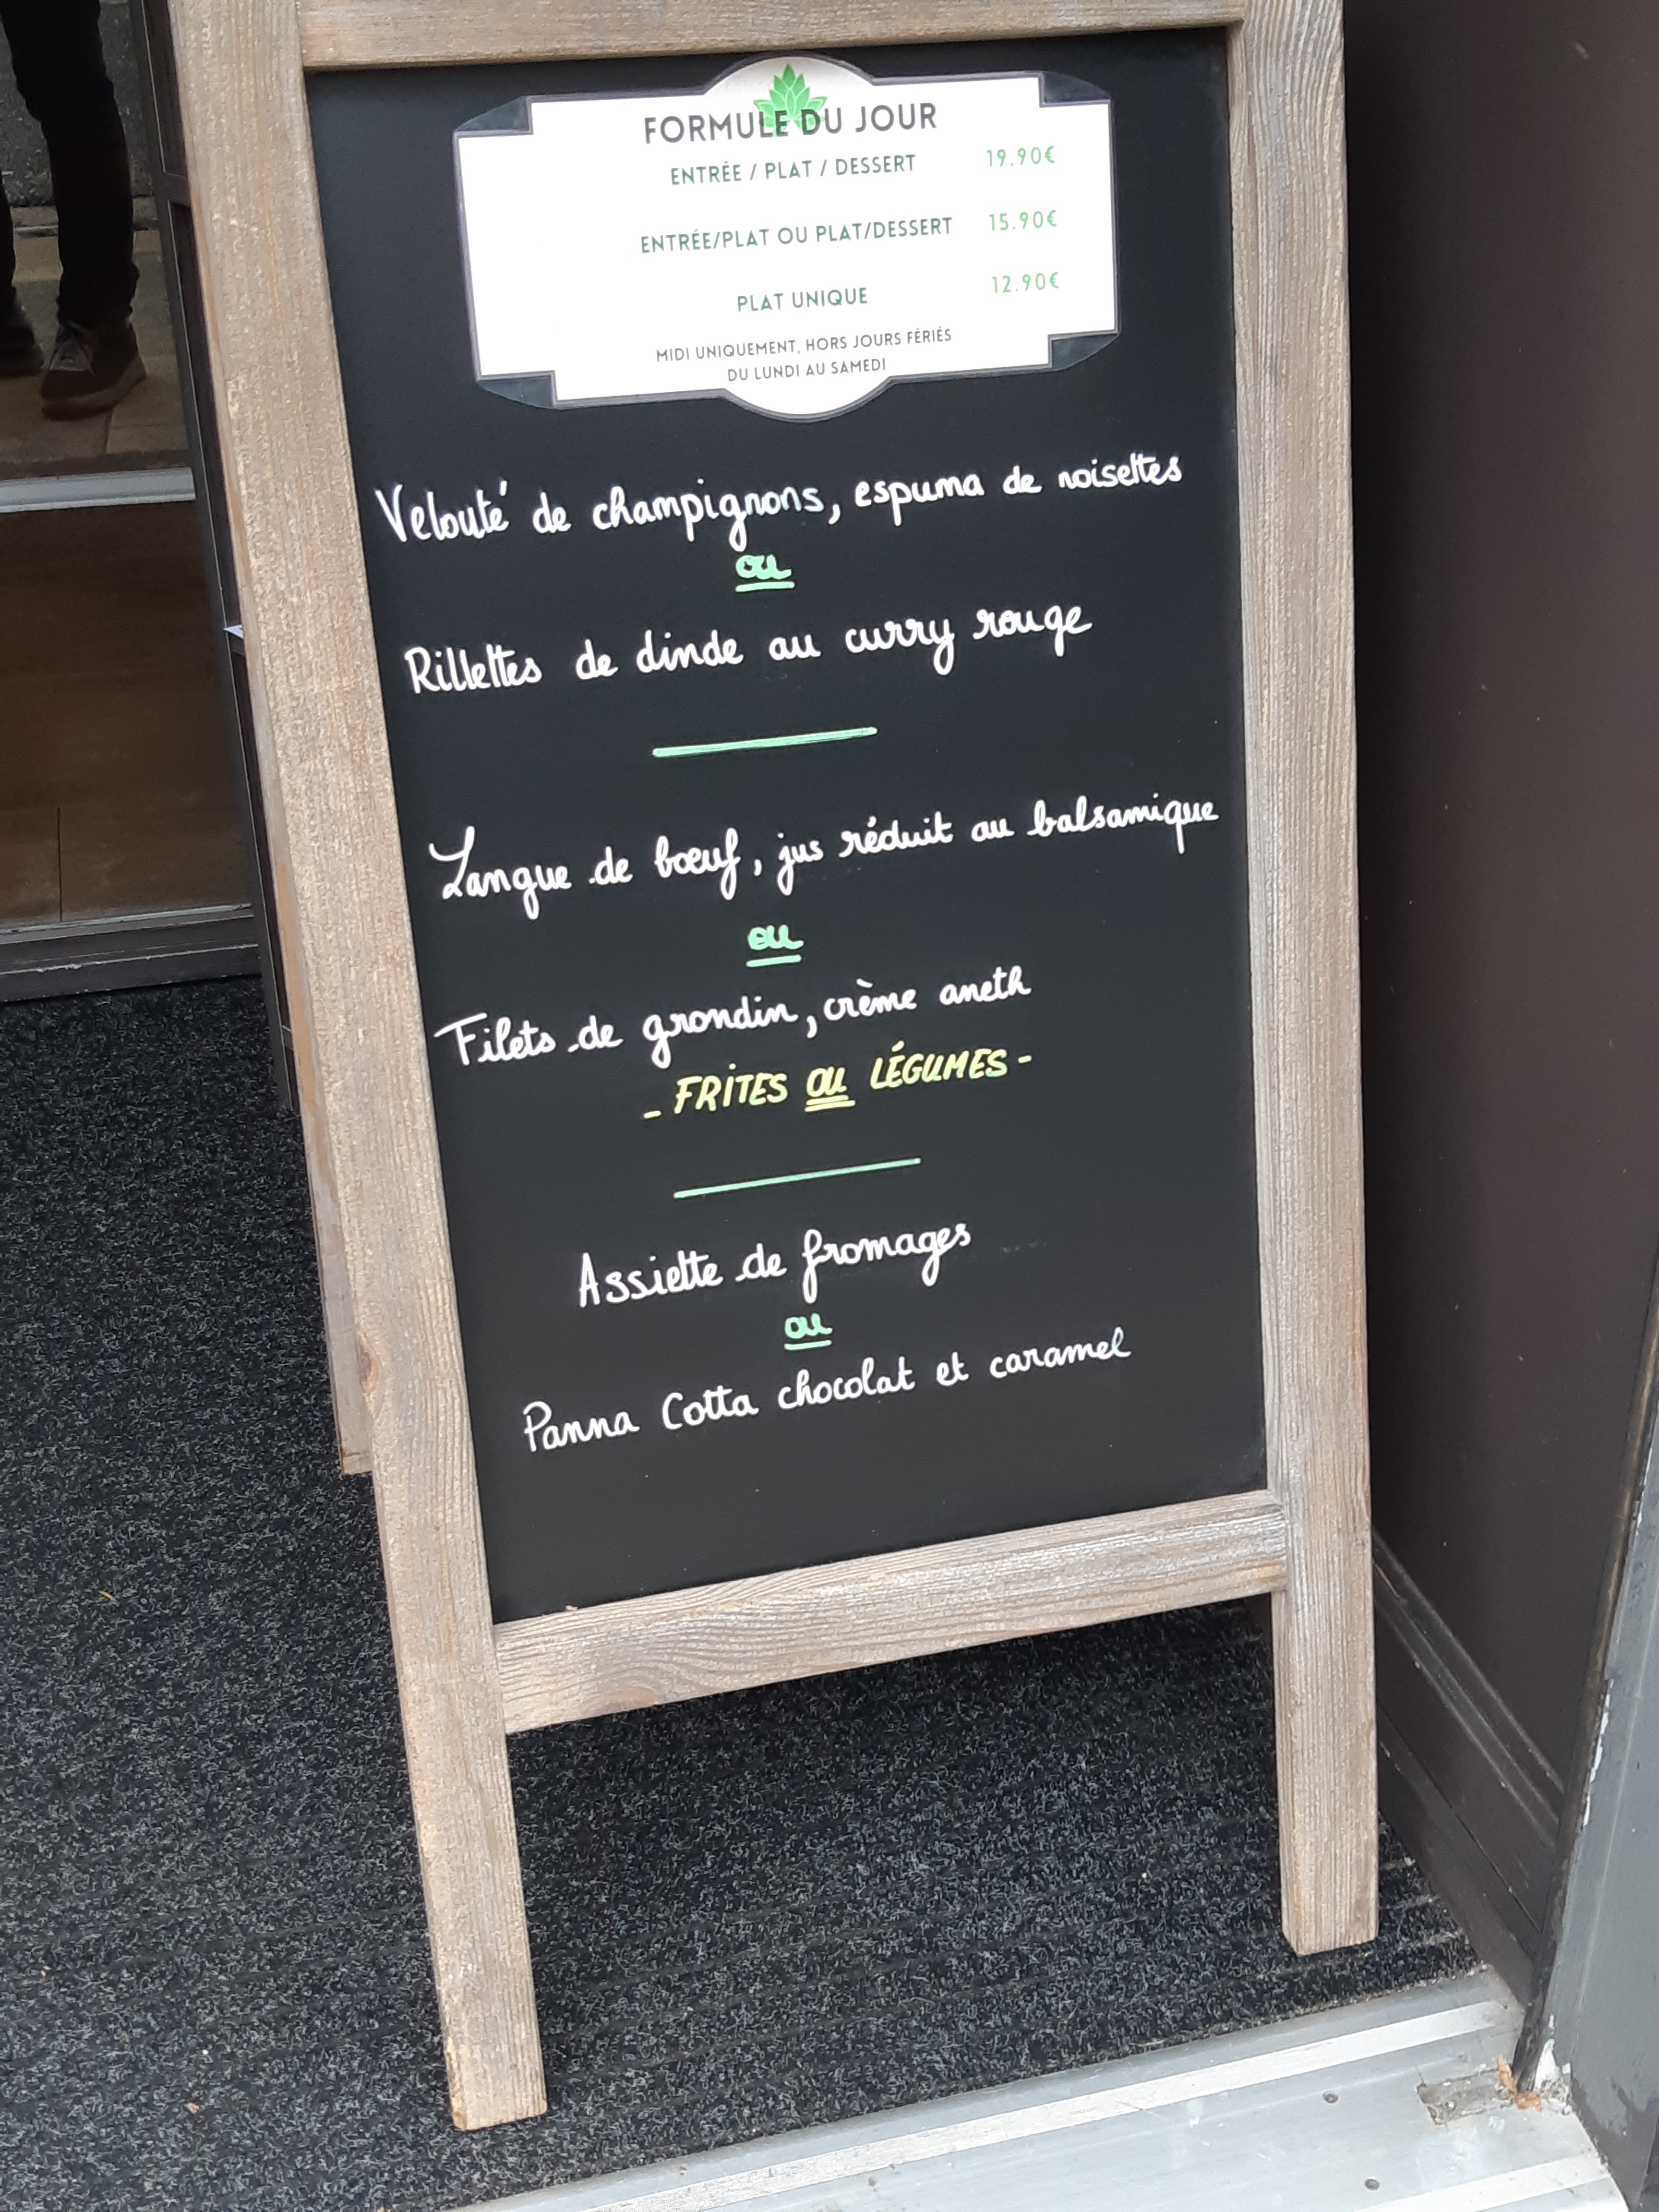 FORMULE DU JOUR
ENTRÉE / PLAT / DESSERT 19.90€
ENTRÉE/PLAT OU PLAT/DESSERT 15.90€
PLAT UNIQUE 12.90€
MIDI UNIQUEMENT, HORS JOURS FÉRIÉS
DU LUNDI AU SAMEDI
Velouté de champignons, espuma de noisettes
ou
Rillettes de dinde au curry rouge
Langue de bœuf, jus réduit au balsamique
ou
Filets de grondin, crème aneth
- FRITES OU LÉGUMES -
Assiette de fromages
ou
Panna Cotta chocolat et caramel